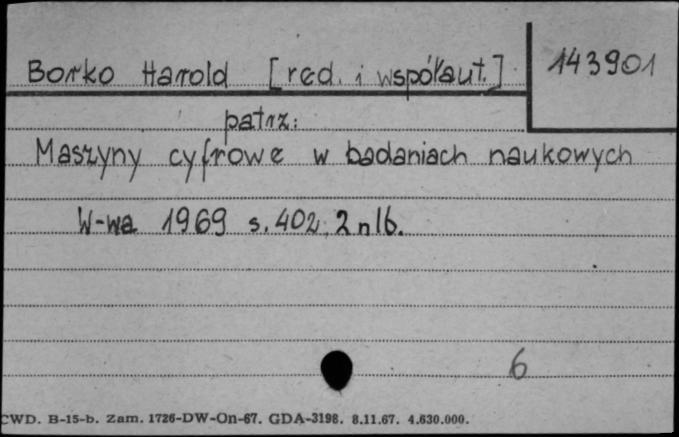 Borko Harold [red. i współaut.] 143901
patrz:
Maszyny cyfrowe w badaniach naukowych
W-wa 1969 s. 402, 2 nlb.
6
CWD. B-15-b. Zam. 1726-DW-On-67. GDA-3198. 8.11.67. 4.630.000.